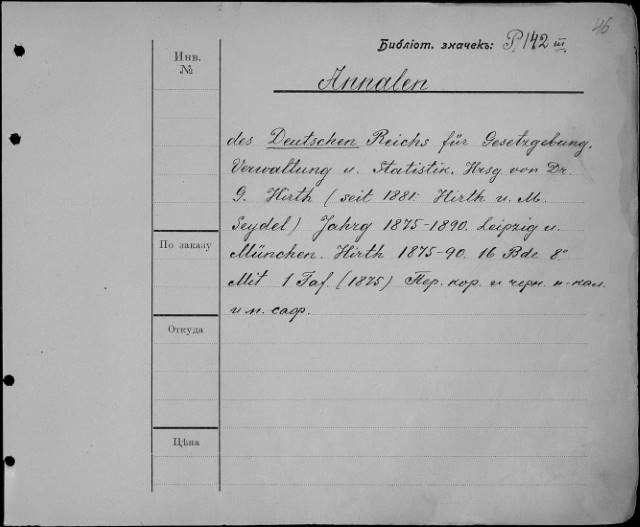 46
Библіот. значекъ: P, 142 III
Инв.
№
Annalen
des Deutschen Reichs für Gesetzgebung,
Verwaltung u. Statistik. Hrsg von Dr.
G. Hirth (seit 1881: Hirth u. M.
Seydel) Jahrg 1875-1890. Leipzig u.
По заказу
München. Hirth 1875-90. 16 Bde 8°
Mit 1 Taf. (1875) Пер. кор. и черн. п-кал.
и п. саф.
Откуда
Цѣна